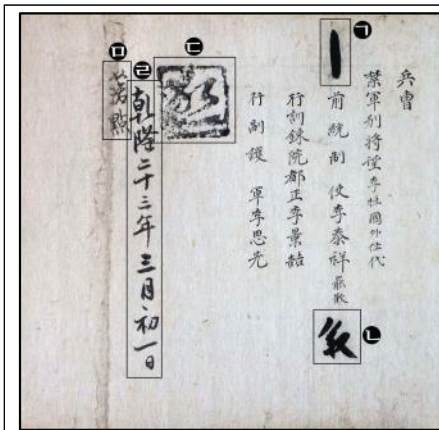 兵曹
禁軍別將望 李柱國外任代
㉠
前統制使李泰祥
㉡
行訓鍊院都正李景喆
行副護軍李思先
㉢
啓
㉣
乾隆二十三年三月初一日
㉤
落點